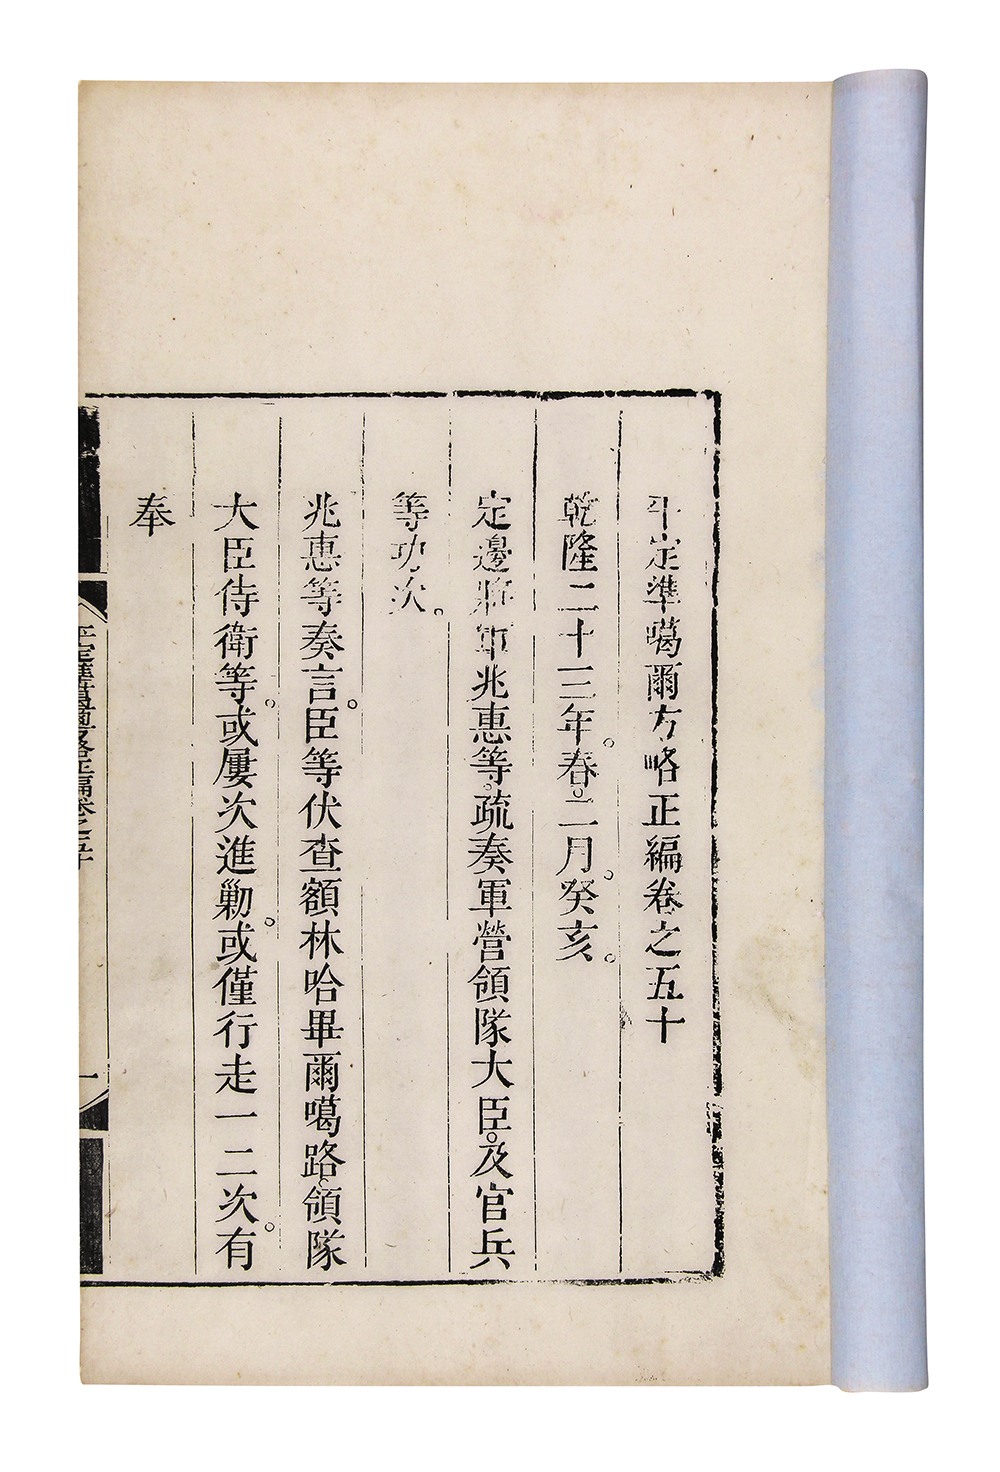 平定準噶爾方略正編卷之五十
乾隆二十三年。春。二月。癸亥。
定邊將軍兆惠等。疏奏軍營領隊大臣。及官兵
等功次。
兆惠等奏言。臣等伏查額林哈畢爾噶路。領隊
大臣侍衛等。或屢次進勦。或僅行走一二次。有
奉
平定準噶爾方略正編卷之五十
一